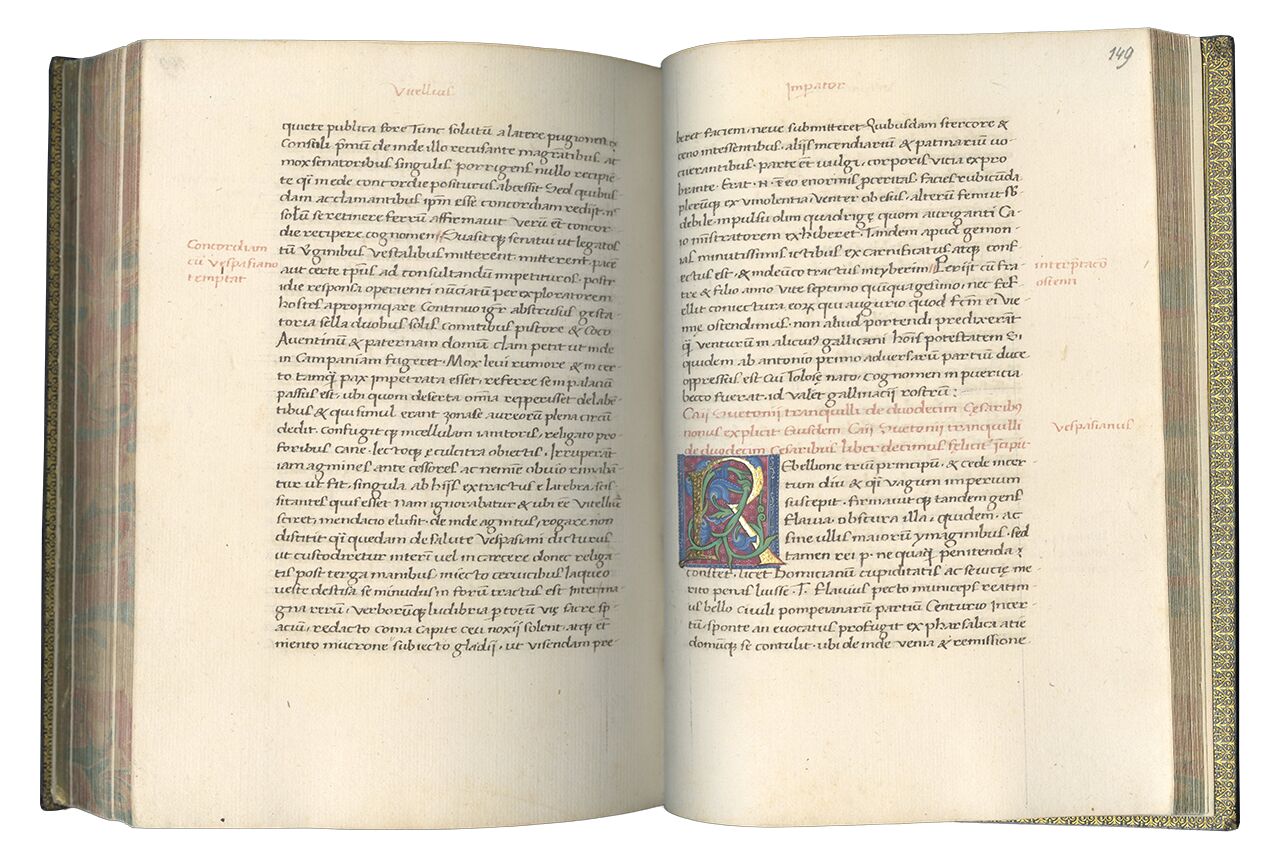 Vitellius
quiete publica fore Tunc solutū a latere pugionem
Consuli pmū de inde illo recusante magratibus ac
mox senatoribus singulis porrigens nullo recipiē
te qī in ede concordie positurus abcessit Sed quibus
dam acclamantibus ipm esse concordiam redijt
solūm se retinere ferrū affirmavit verū et concor
die recipere cognomen Suasit q3 senatui ut legatos
Concordiam
cū vespasiano
temptat
tū Virginibus vestalibus mitterent mitterent pacē
aut certe tpus ad consultandum impetituros postr
idie responsa operienti nūciatū per exploratorem
hostes apropinqare Continuo igr abstrusus gesta
toria sella duobus solis comitibus pistore & Coco
Aventinū & paternam domū clam petit ut inde
in Campaniam fugeret. Mox levi rumore & incer
to tamq pax impetrata esset, referre se in palaciū
passus est, ubi quom deserta omīa repperisset delabē
tibus & qui simul erant zonase aureorū plena circū
dedit. Confugit q3 in cellulam ianitoris, religato pro
foribus Cane. lectoq3 & culcitra obiectis, Irruperāt
iam agminis ante cessores ac nemine obvio rimabā
tur ut fit, singula ab hijs extractus e latebra scis
sitantes quis esset nam ignorabatur & ubi eē vitelliū
sciret, mendacio elusit de inde agnitus, rogare non
distitit qī quedam de salute vespasiani dicturus
ut custodiretur interī vel in carcere donec religa
tis post terga manibus iniecto cervicibus laqueo
veste descisa seminudus in forū tractus est inter ma
gna rerū, verborūq3 ludibria p totum vię sacre sp
acium, redacto coma Capite ceu noxij solent atq3 et
mento mucrone subiecto gladij, ut visendam pre
Impator
149
beret faciem, neve submitteret Quibusdam stercore &
ceno incessentibus. alijs incendiarium & patinarium vo
ciferantibus. parte et vulgi, corporis vitia expro
brante. Erat .N. ī eo enormis pceritas facies rubicūda
plerūq3 ex vinolentia venter obesus, alterū femur sb
debile impulsu olim quadrigę quom auriganti Ca
io ministratorem exhiberet. Tandem apud gemon
ias minutissimis ictibus ex carnificatus atq3 conf
ectus est & inde unco tractus in tyberim Periit cū fra
interptaco
ostenti
tre & filio anno vite septimo quinquagesimo, nec fef
ellit coniectura eorum qui augurio quod fcm ei vie
nne ostendimus. non aliud portendi predixerāt
q venturum in alicuius gallicani hois potestatem Si
quidem ab antonio primo adversarū partiū duce
oppressus est Cui Tolosę nato, cognomen in puericia
becco fuerat, id valet gallinacii rostrū :
Caii Suetonii tranquilli de duodecim Cesaribus
nonus explicit Eiusdem Caii Suetonii tranquilli
vespasianus
de duodecim Cesaribus liber decimus felicit īcipit
REbellione triū principū, & cede incer
tum diu & qī vagum imperium
suscepit. firmavit q3 tandem gens
flavia, obscura illa, quidem, ac
sine ullis maiorū ymaginibus sed
tamen rei .p. ne quaq penitenda
constet, licet Domicianū cupiditatis ac sevicię me
rito penas luisse .T. flavius pecto municeps reatin
us bello civili pompeianarū partiū Centurio incer
tū, sponte an evocatus profugit ex pharsalica acie
domūq3 se contulit. ubi de inde venia & remissione